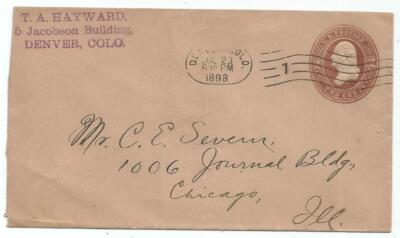 T. A. HAYWARD,
5 Jacobson Building,
DENVER, COLO.
DENVER, COLO.
JUL 23
6 PM
1893
1
Mr. C. E. Severn,
1006 Journal Bldg,
Chicago,
Ill.